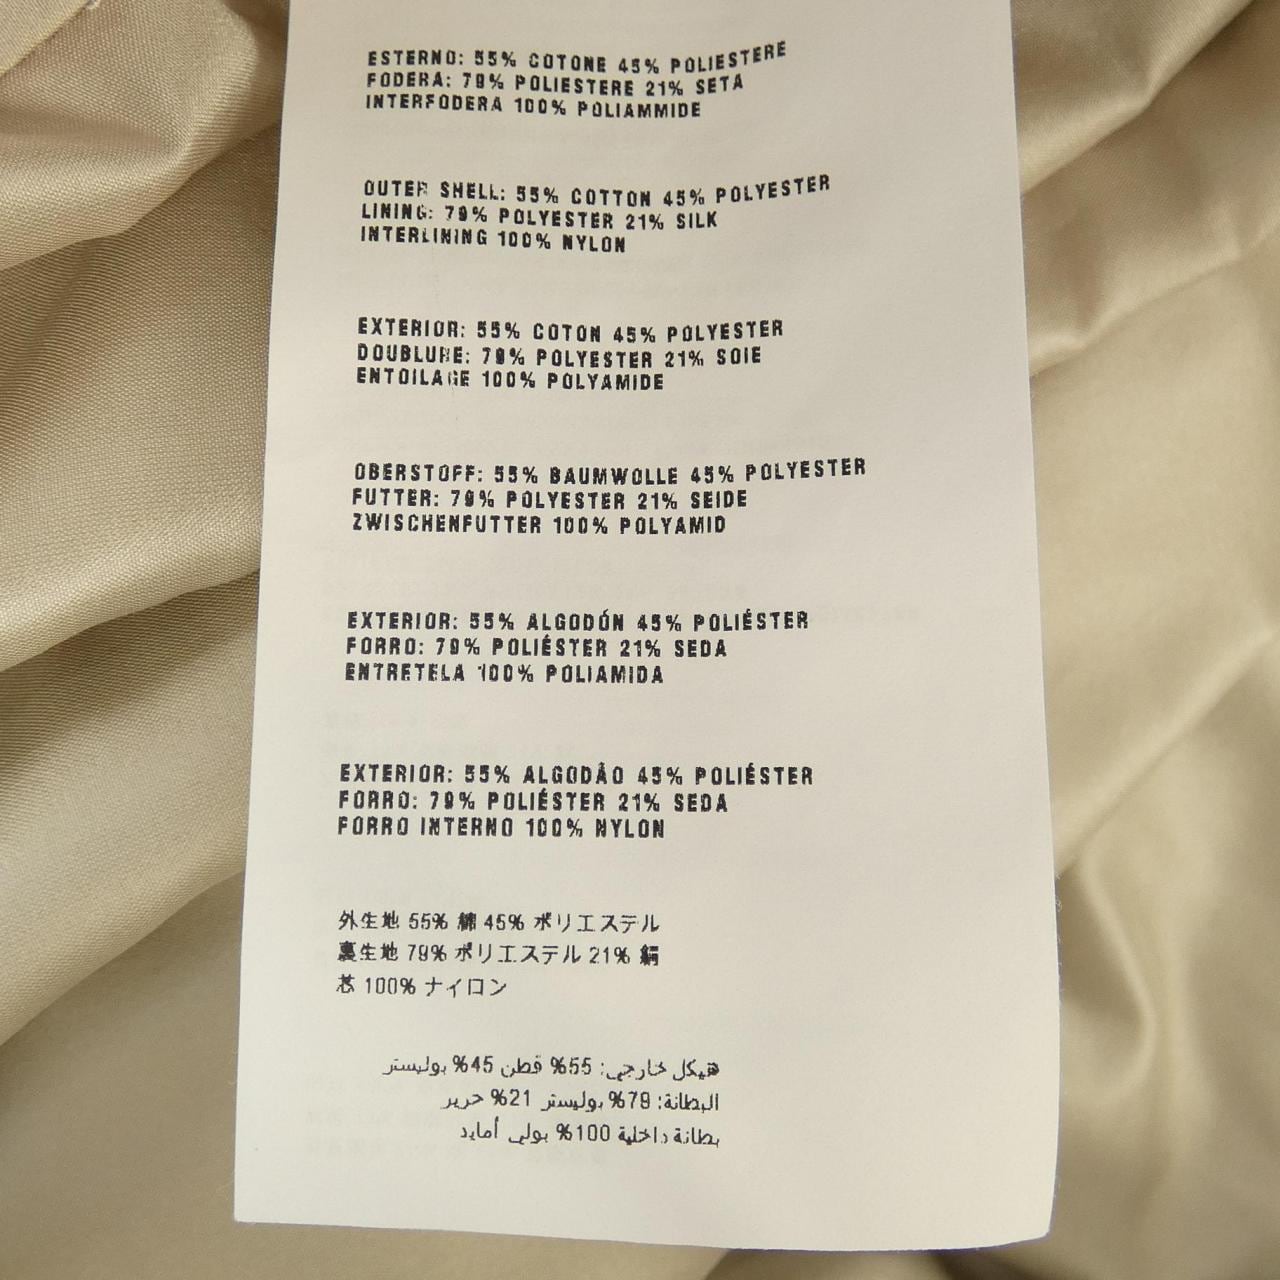 ESTERNO: 55% COTONE 45% POLIESTERE
FODERA: 79% POLIESTERE 21% SETA
INTERFODERA 100% POLIAMMIDE
OUTER SHELL: 55% COTTON 45% POLYESTER
LINING: 79% POLYESTER 21% SILK
INTERLINING 100% NYLON
EXTERIOR: 55% COTON 45% POLYESTER
DOUBLURE: 79% POLYESTER 21% SOIE
ENTOILAGE 100% POLYAMIDE
OBERSTOFF: 55% BAUMWOLLE 45% POLYESTER
FUTTER: 79% POLYESTER 21% SEIDE
ZWISCHENFUTTER 100% POLYAMID
EXTERIOR: 55% ALGODÓN 45% POLIÉSTER
FORRO: 79% POLIÉSTER 21% SEDA
ENTRETELA 100% POLIAMIDA
EXTERIOR: 55% ALGODÃO 45% POLIÉSTER
FORRO: 79% POLIÉSTER 21% SEDA
FORRO INTERNO 100% NYLON
外生地 55% 綿 45% ポリエステル
裏生地 79% ポリエステル 21% 絹
芯 100% ナイロン
هيكل خارجي: 55% قطن 45% بوليستر
البطانة: 79% بوليستر 21% حرير
بطانة داخلية 100% بولي أمايد